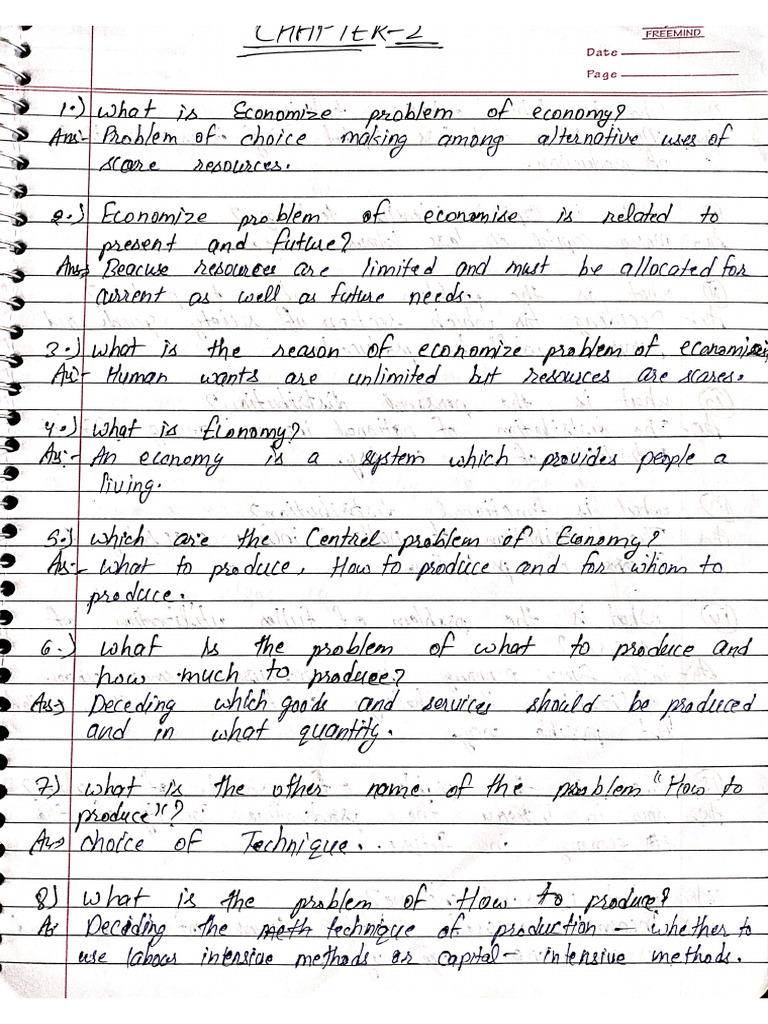 CHAPTER-2
FREEMIND
Date
Page
1.) What is Economize problem of economy?
Ans:- Problem of choice making among alternative uses of
scare resources.
2.) Economize problem of economise is related to
present and future?
Ans:- Beacuse resources are limited and must be allocated for
current as well as future needs.
3.) what is the reason of economize problem of economise
As:- Human wants are unlimited but resources are scares.
4.) What is Economy?
As:- An economy is a system which provides people a
living.
5.) which are the Centrel problem of Economy?
As:- What to produce, How to produce and for whom to
produce.
6.) what is the problem of what to produce and
how much to produce?
As:- Deceding which goods and services should be produced
and in what quantity.
7) what is the other name of the problem "How to
produce"?
As:- choice of Technique.
8) what is the problem of How to produce?
A: Deciding the meth technique of production – whether to
use labour intensive methods or capital- intensive methods.